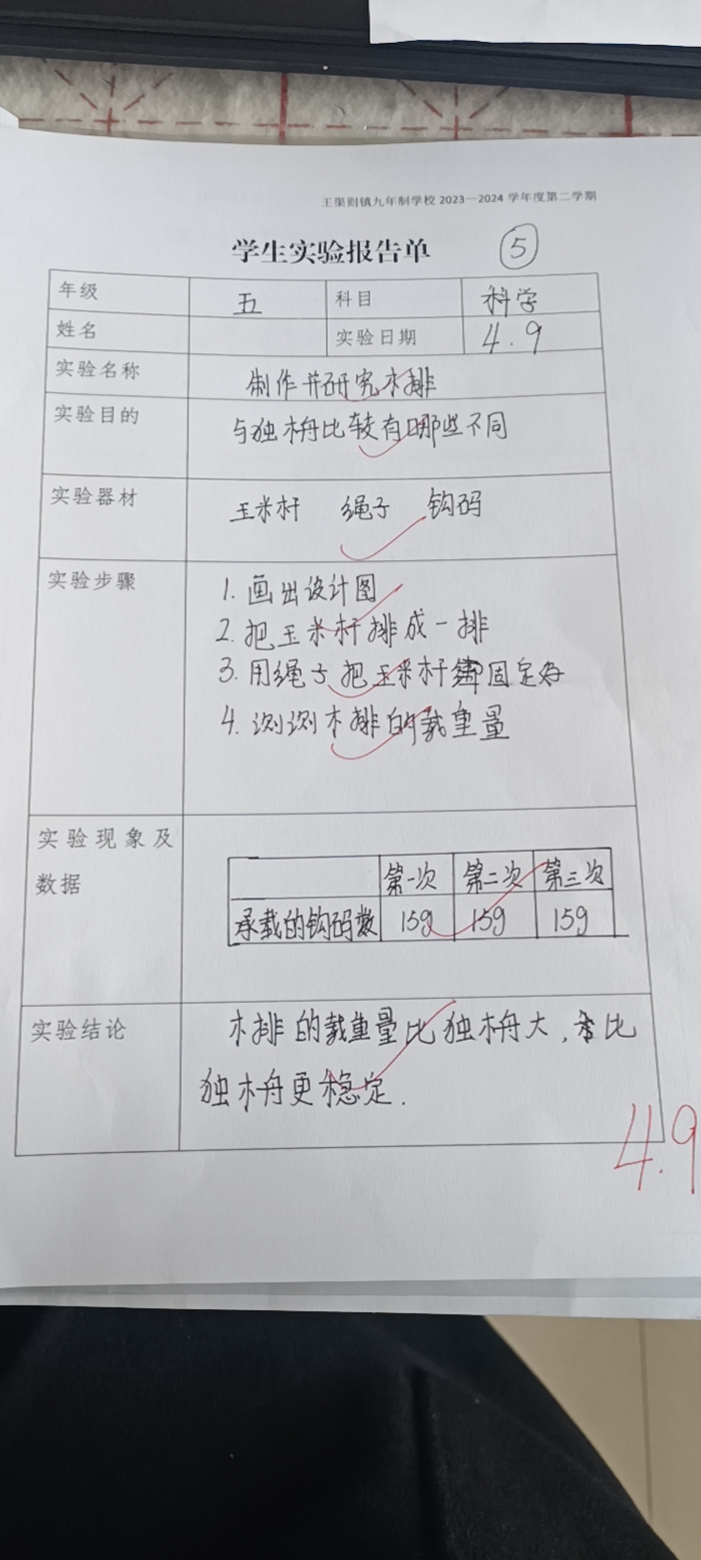 王渠则镇九年制学校 2023—2024 学年度第二学期
学生实验报告单 ⑤
年级 五 科目 科学
姓名 实验日期 4.9
实验名称 制作并研究木排
实验目的 与独木舟比较有哪些不同
实验器材 玉米杆 绳子 钩码
实验步骤 1. 画出设计图
2. 把玉米杆排成一排
3. 用绳子把玉米杆绑固定好
4. 测测木排的载重量
实验现象及
数据
第一次 第二次 第三次
承载的钩码数 15g 15g 15g
实验结论 木排的载重量比独木舟大，比
独木舟更稳定.
4.9